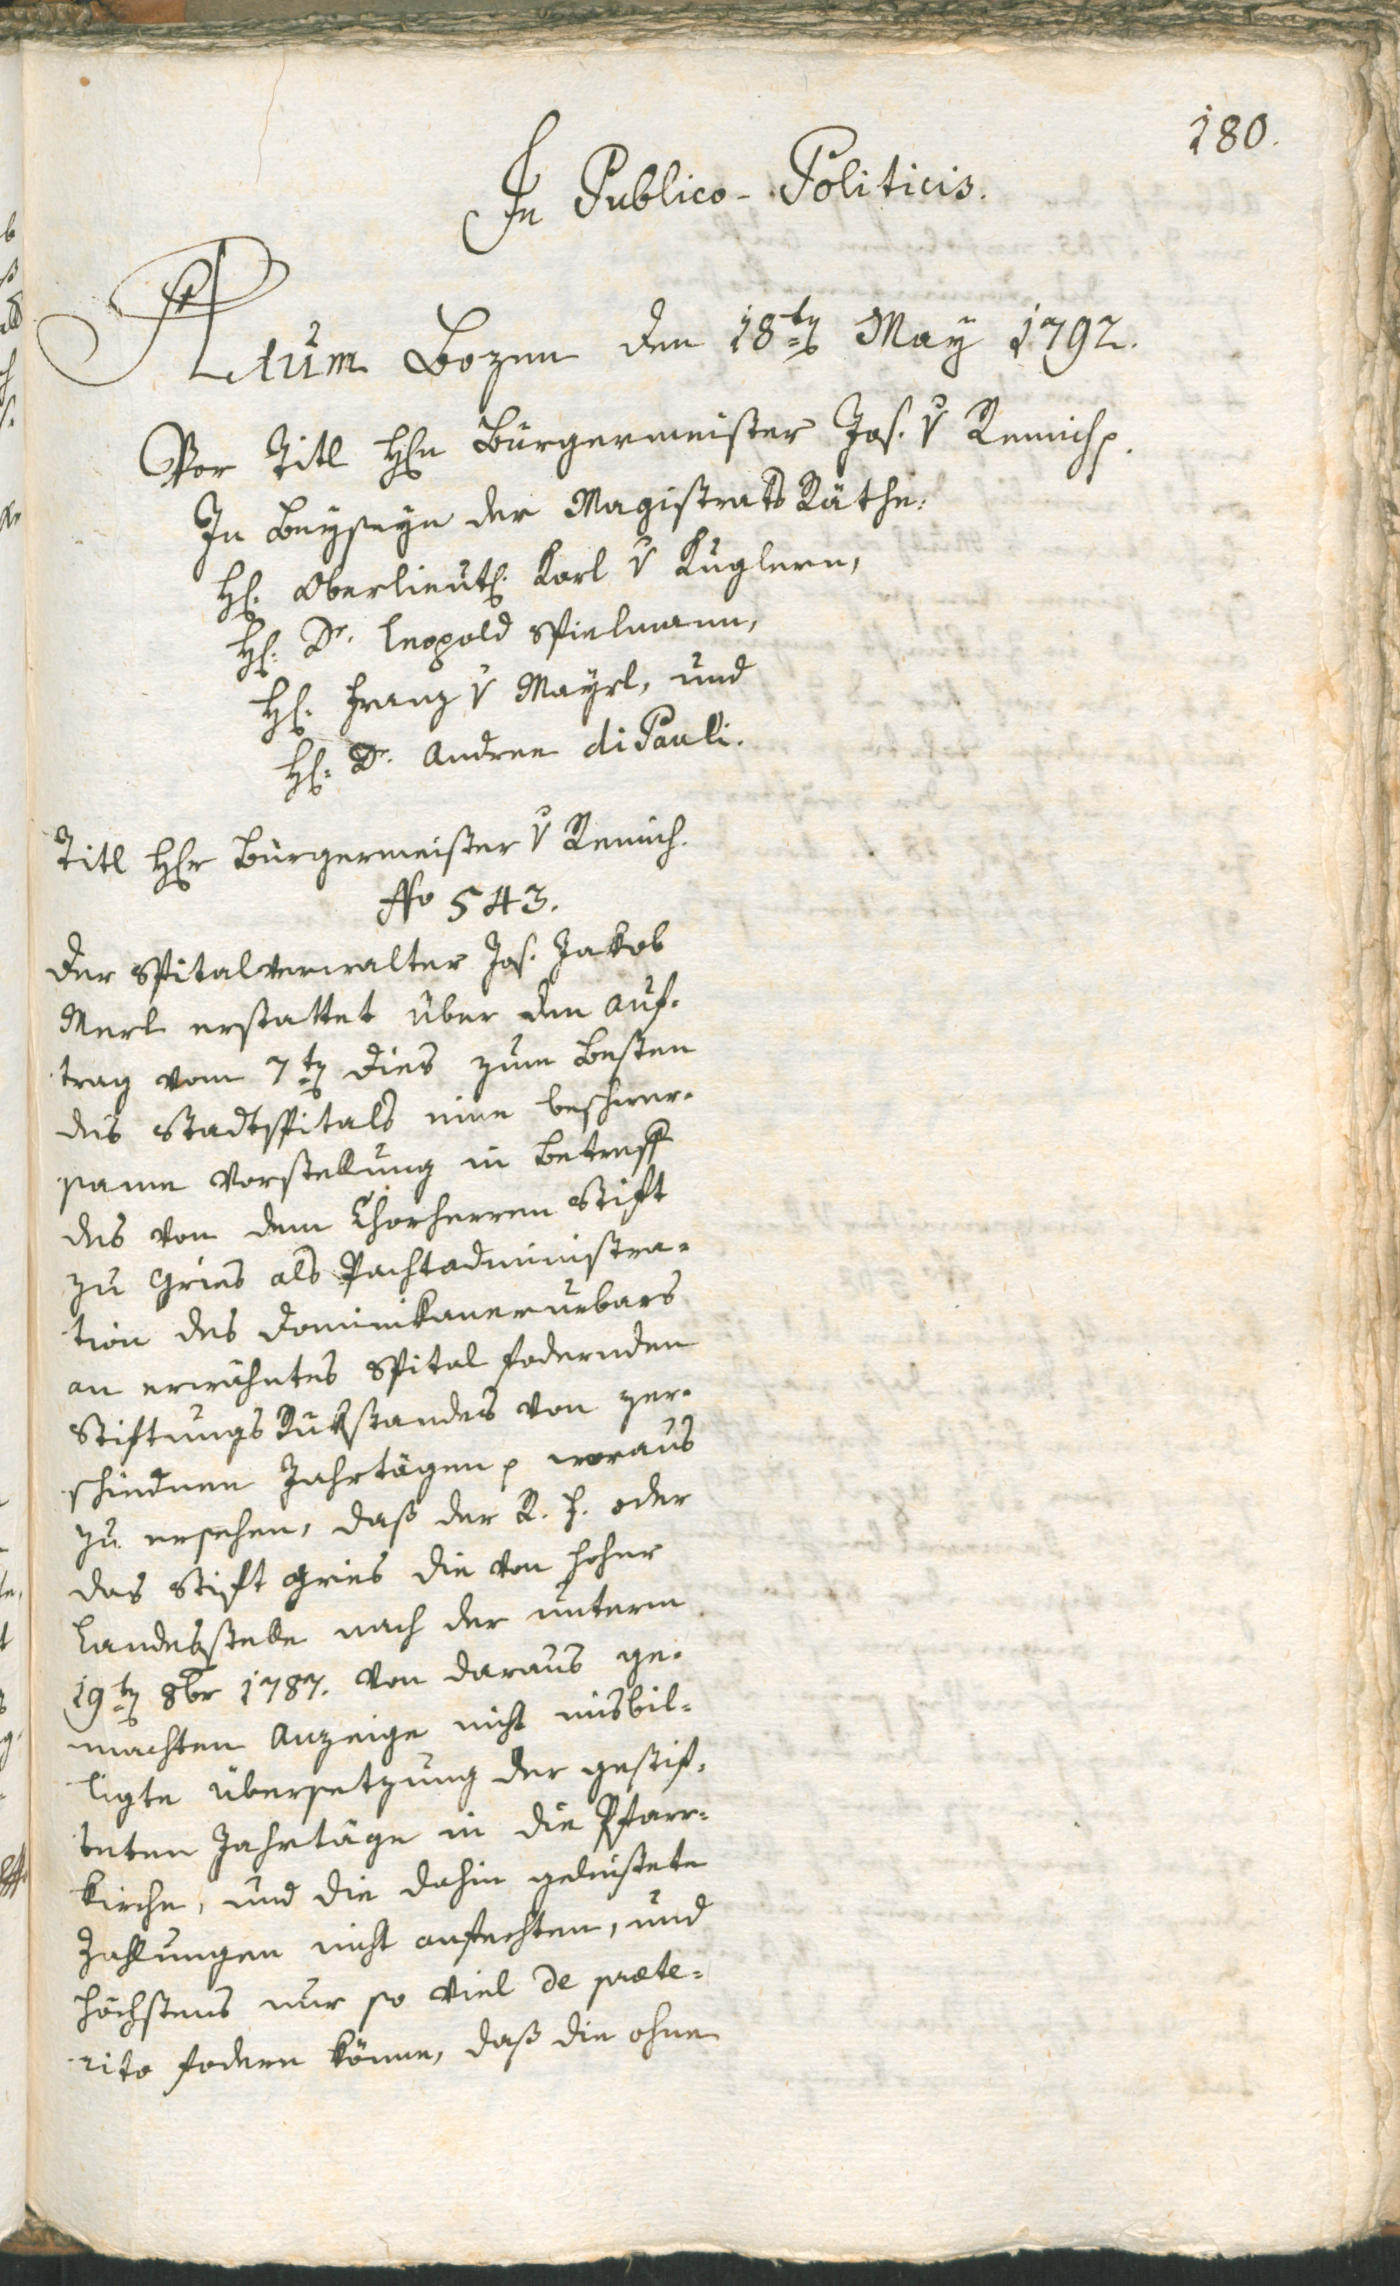 180.
In Publico-Politicis.
Actum Bozen den 18t May 1792.
Vor Titl Hℓn Bürgermeister Jos. v Remich p.
In Beyseyn der Magistrats Räthe:
Hℓ. Oberlieut. Karl v Kuglern,
Hℓ. Dr. Leopold Spielmann,
Hℓ. Franz v Mayrl, und
Hℓ. Dr. Andree diPauli.
Titl Hℓr Bürgermeister v Remich.
No 543.
Der Spitalverwalter Jos. Jakob
Merl erstattet über den Auf-
trag vom 7t dies zum Besten
des Stadtspitals eine beschwer-
same Vorstellung in Betreff
des von dem Chorherren Stift
zu Gries als Pachtadministra-
tion des Dominikanerurbars
an erwähntes Spital fodernden
Stiftungs Rukstandes von ver-
schiednen Jahrtägen p woraus
zu ersehen, daß der R. F. oder
das Stift Gries die von hoher
Landesstelle nach der unterm
19t 8br 1787. von daraus ge-
machten Anzeige nicht misbil-
ligte Übersetzung der gestif-
teten Jahrtäge in die Pfarr-
kirche, und die dahin geleistete
Zahlungen nicht anfechten, und
höchstens nur so viel de præte-
rito fodern könne, daß die ohne